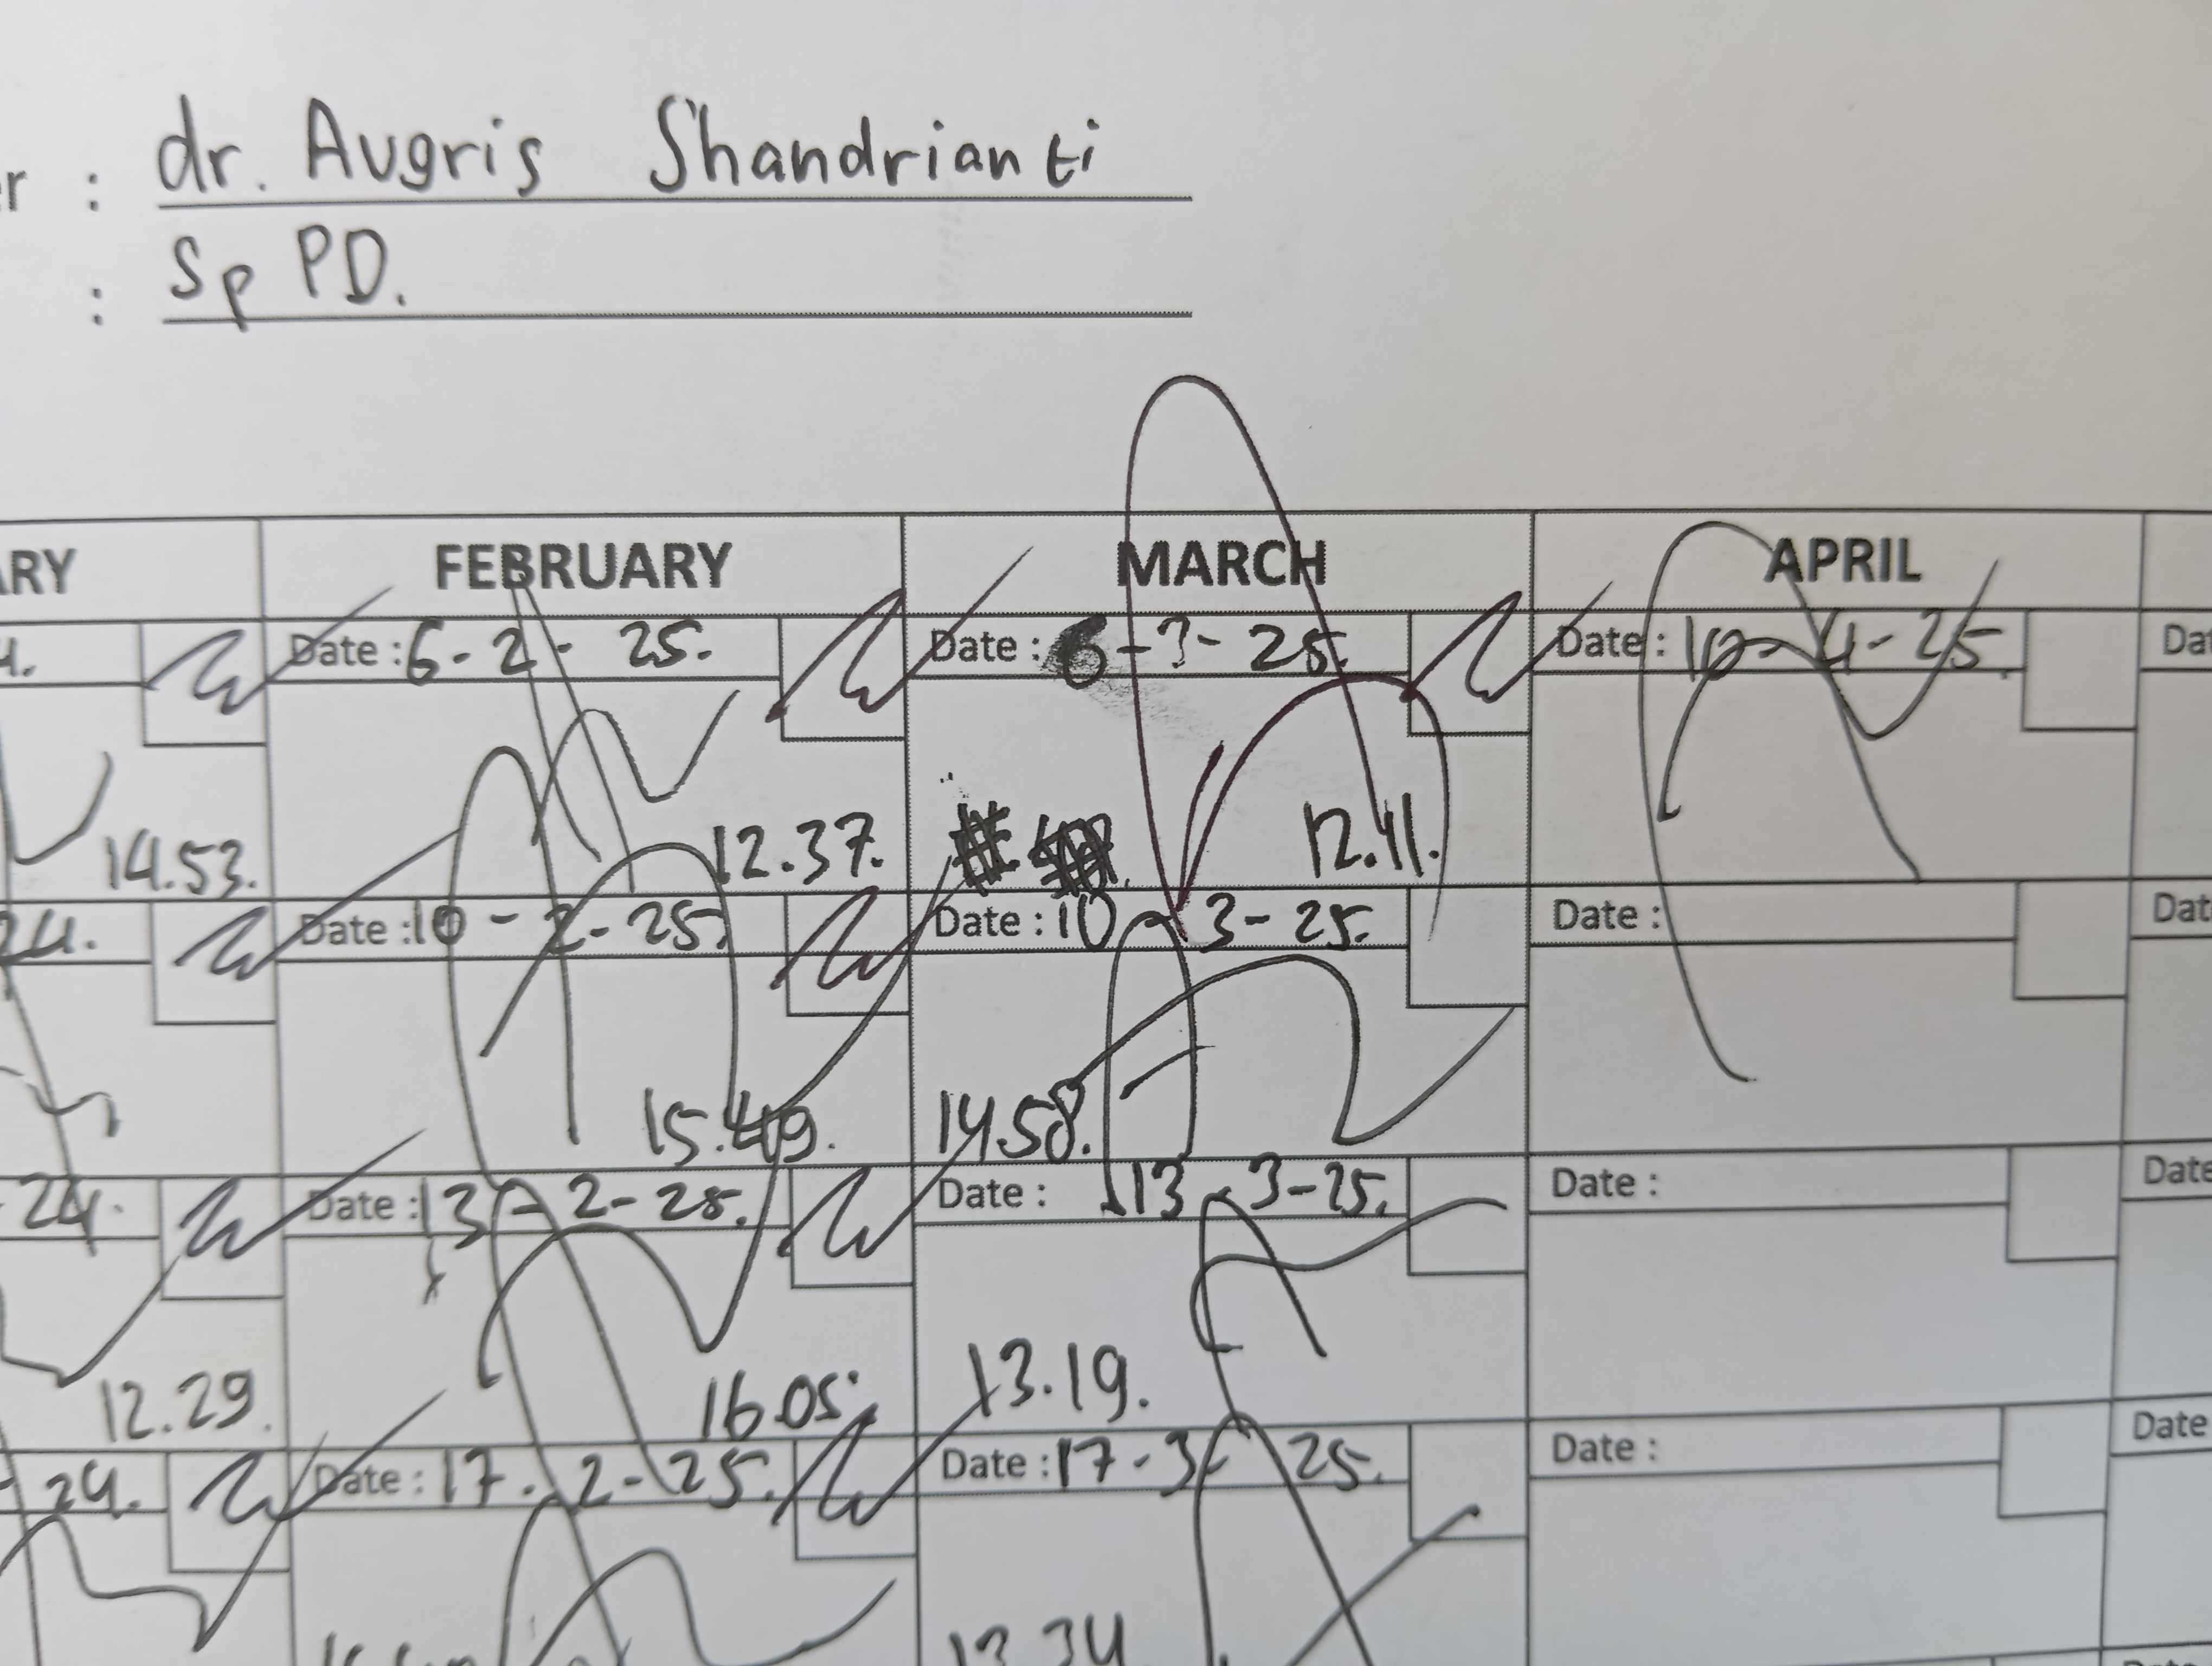 : dr. Augris Shandrianti
: Sp PD.
FEBRUARY MARCH APRIL
Date : 6-2-25. Date : 6-3-25. Date : 10-4-25.
14.53. 12.37. 12.11.
24. Date : 10-2-25. Date : 10-3-25. Date :
15.49. 14.58.
24. Date : 13-2-25. Date : 13-3-25. Date : Date
12.29. 16.05. 13.19.
24. Date : 17-2-25. Date : 17-3-25. Date : Date
13.34